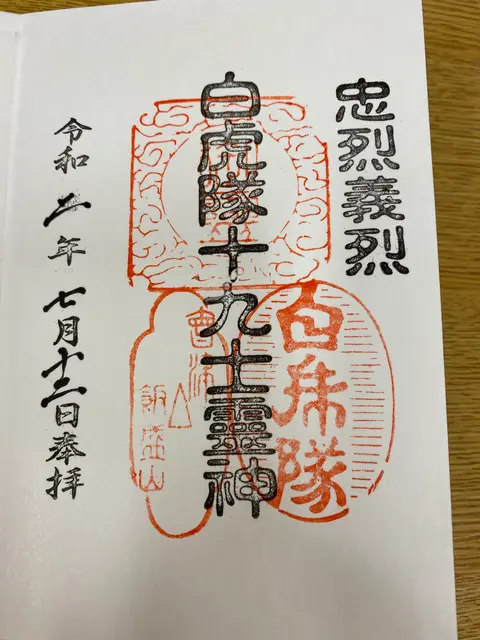 忠烈義烈
白虎隊十九士靈神
白虎隊
會津
飯盛山
令和二年七月十二日奉拝